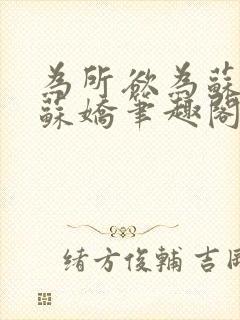 為所欲為蘇
蘇嬌筆趣閣
緒方俊輔 吉岡